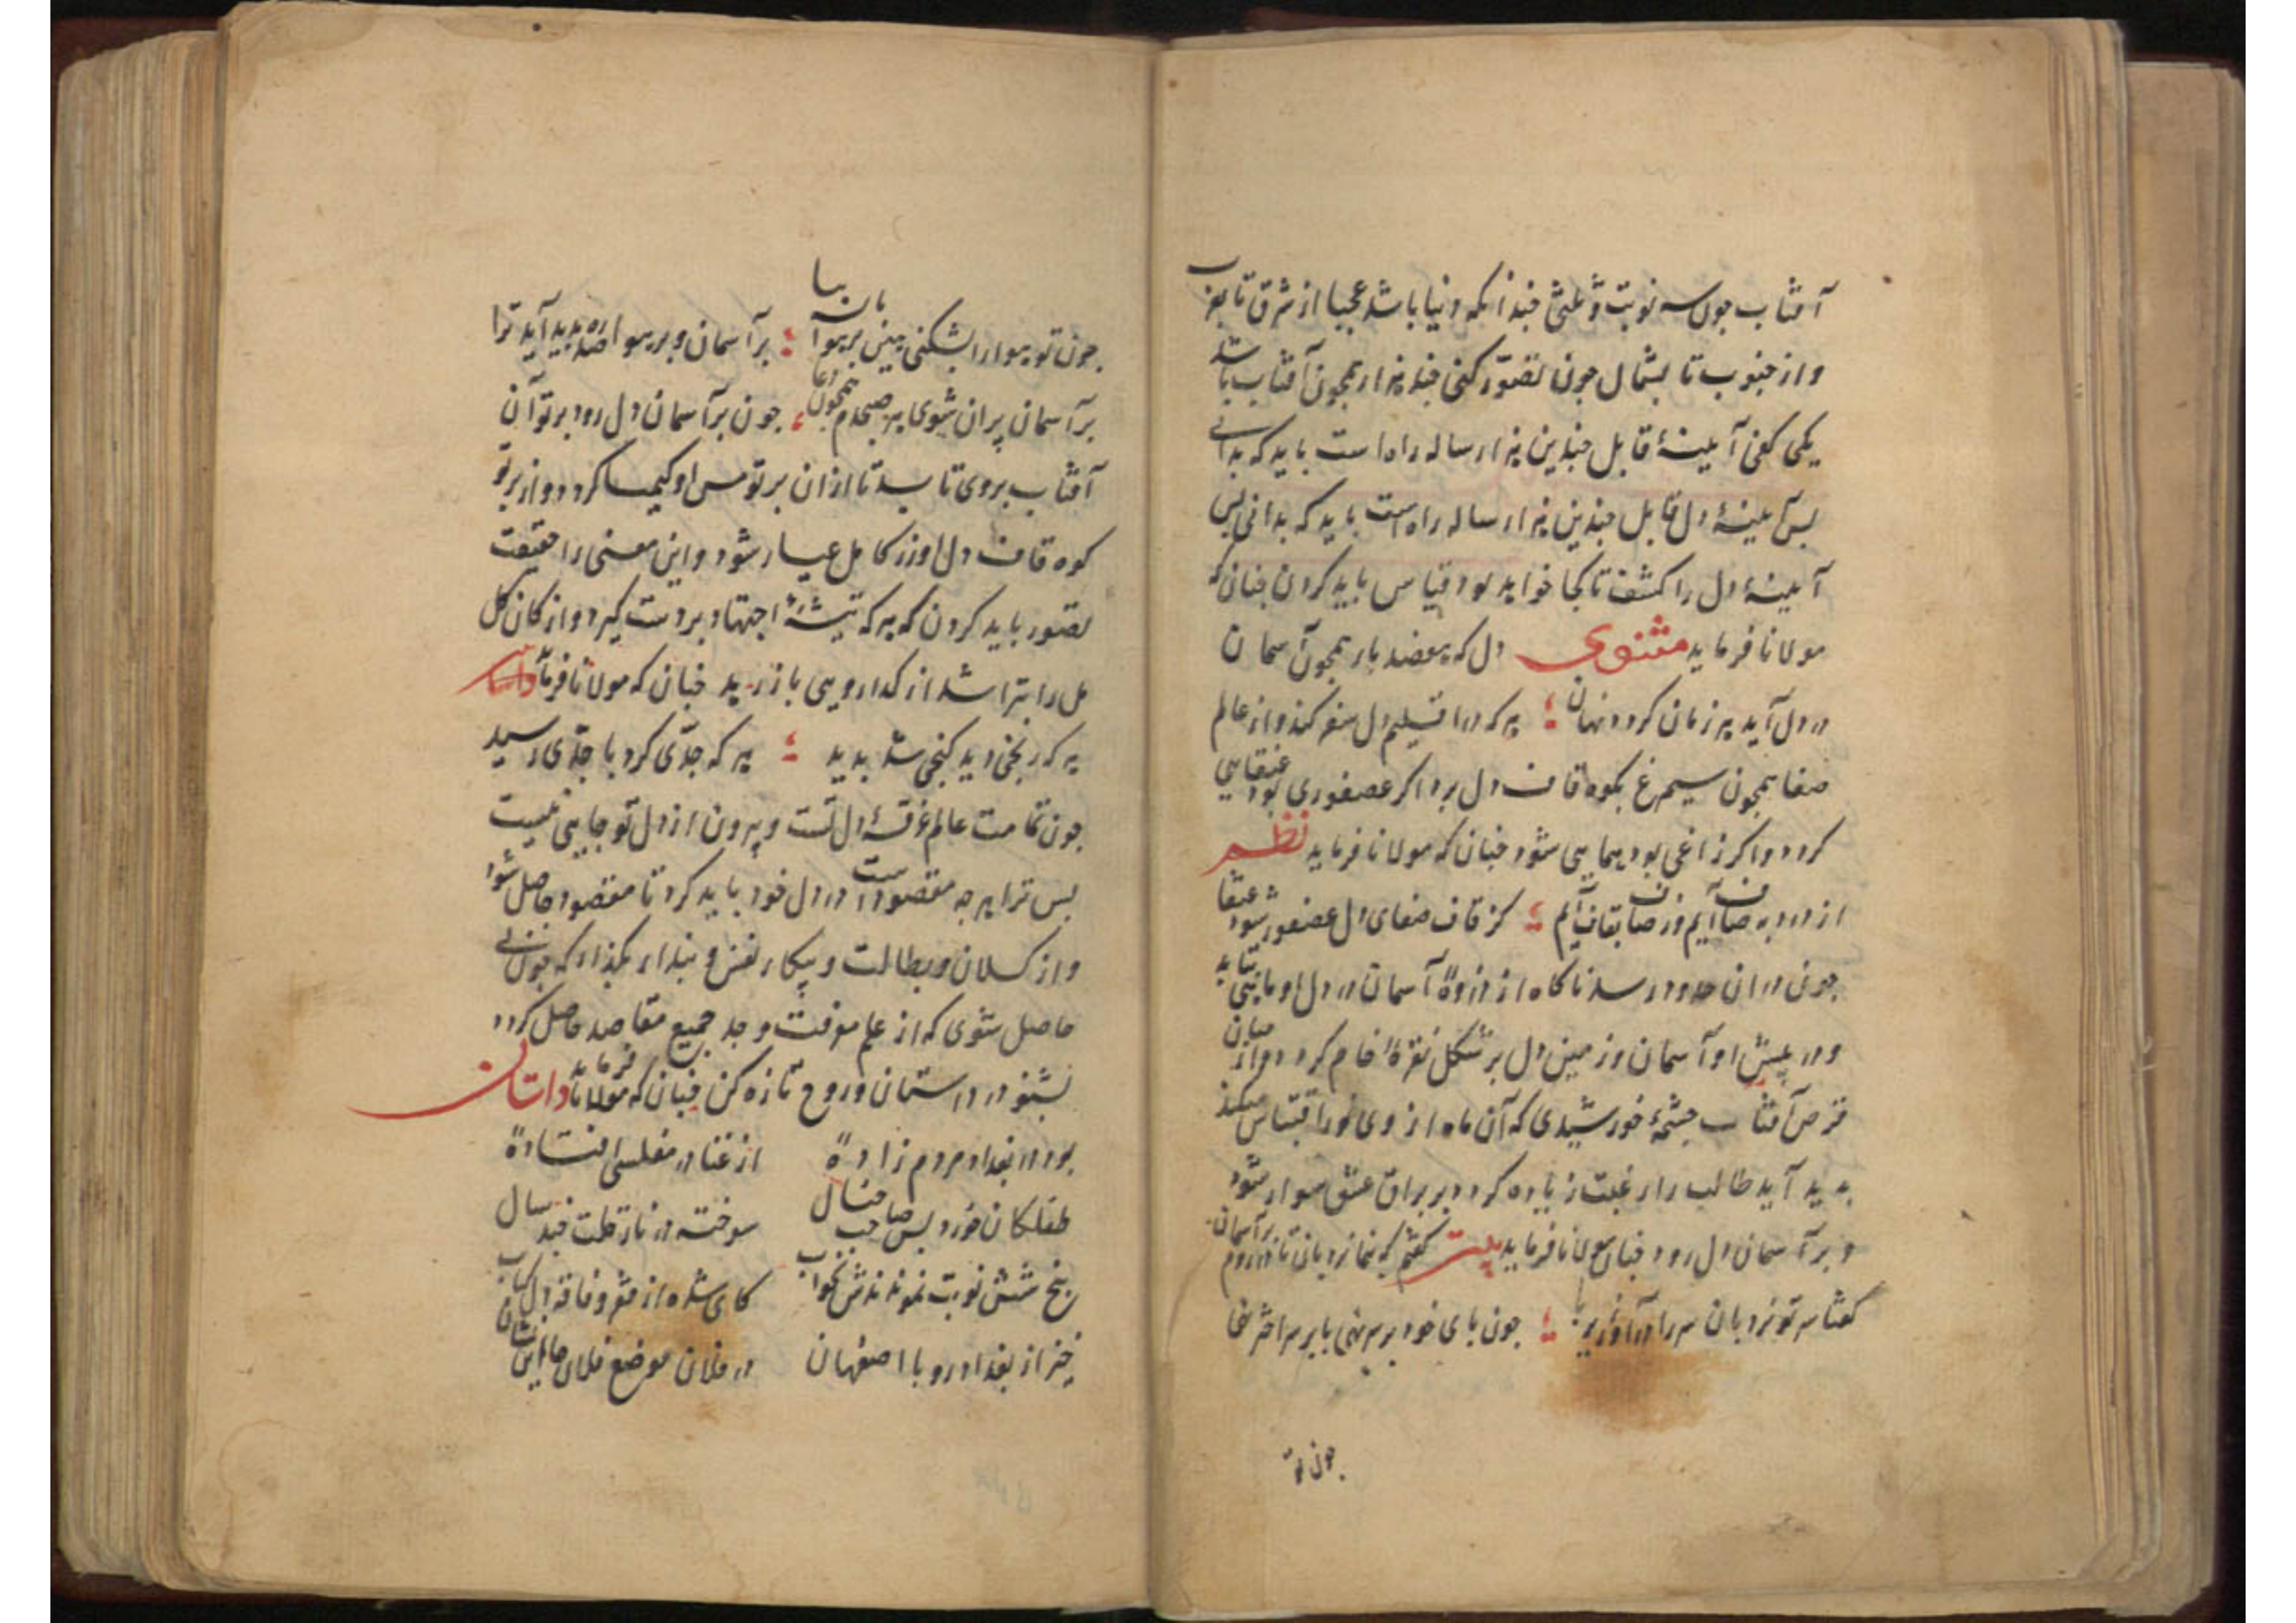 آفتاب جون سه نوبت و ثلثی جندانکه دنیا باشد عجبا از شرق تا بغرب
و از جنوب تا بشمال جون تصوّر کنی جند هزار همجون آفتاب باشد
یکی کفی آیینهٔ قابل جندین هزار ساله راه است باید که بدانی
بس آیینهٔ دل قابل جندین هزار ساله راه است باید که بدانی بس
آیینهٔ دل را کشف تا کجا خواهد بود قیاس باید کردن جنان که
مولانا فرماید مثنوی دل که هفصد بار همجون آسمان
در دل آید هر زمان کردد نهان ؛ هر که در اقلیم دل سفر کند و از عالم
صفا همجون سیمرغ بکوه قاف دل برد اکر عصفوری بود عنقایی
کردد و اکر زاغی بود همایی شود جنان که مولانا فرماید نظم
از درد به صاف آیم وز صاف بقاف آیم ؛ کز قاف صفای دل عصفور شود عنقا
جون در ان حدود رسد ناکاه از ذروهٔ آسمان در دل او ماهی بتابد
و در پیش او آسمان و زمین دل بر شکل نقرهٔ خام کردد و از میان
قرص آفتاب جشمهٔ خورشیدی که آن ماه از وی نور اقتباس میکند
بدید آید طالب را رغبت زیاده کردد بر براق عشق سوار شود
و بر آسمان دل رود جنان مولانا فرماید بیت کفتم که بنما نردبان تا بر آسمان در روم
کفتا سر تو نردبان سر را درآور زیر پا ؛ جون بای خود بر سر نهی با بر سر اختر نها
جون تو
جون تو هوا را بشکنی بینی بر هوا بان بیا ؛ بر آسمان و بر هوا صد ره بدید آید ترا
بر آسمان پران شوی هر صبحدم همجون دعا ؛ جون بر آسمان دل رود برتو آن
آفتاب بروی تابد تا از ان برتو مس او کیمیا کردد و از برتو
کوه قاف دل او زر کامل عیار شود و این معنی را حقیقت
تصور باید کردن که هر که تیشهٔ اجتهاد بر دست کیرد و از کان کل
مل را بتراشد از کدا رویی باز رهد جنان که مولانا فرماید داستان
هر که رنجی دید کنجی شد بدید ؛ هر که جدّی کرد با جدّی رسید
جون تمامت عالم غرقهٔ دل تست و بیرون از دل تو جایی نیست
بس ترا هر جه مقصود است در دل خود باید کرد تا مقصود حاصل شود
و از کسلان و بطالت و بیکار نفس و بندار بکذار که جون بی
حاصل شوی که از علم معرفت و جد جمیع مقاصد حاصل کردد
بشنو در داستان و روح تازه کن جنان که مولانا فرماید داستان
بود در بغداد مردم زادهٔ از غنا در مفلسی افتادهٔ
طفلکان خرد بس صاحب منال سوخته در نار قلت جند سال
بنج شش نوبت نمودندش بخواب کای شده از فقر و فاقه دل کباب
خیز از بغداد رو با اصفهان در فلان موضع فلان جا این نشان